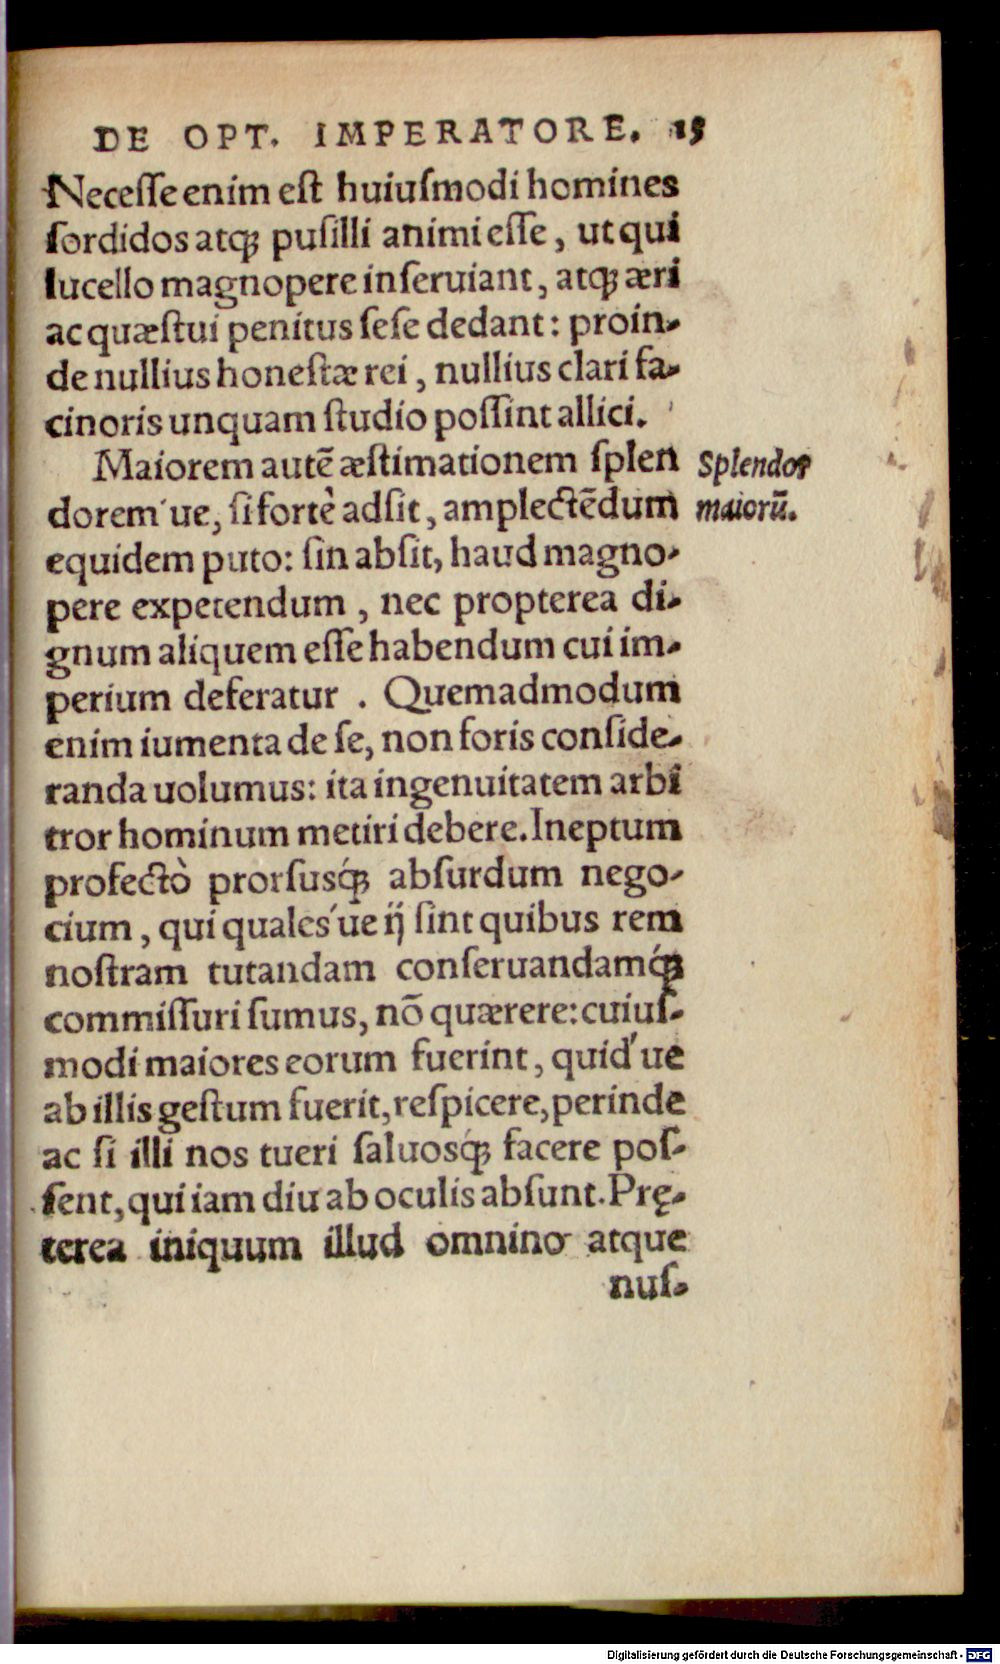 DE OPT. IMPERATORE. 15
Neceſſe enim eſt huiuſmodi homines
ſordidos atqꝫ puſilli animi eſſe, ut qui
lucello magnopere inſeruiant, atqꝫ æri
ac quæſtui penitus ſeſe dedant: proin-
de nullius honeſtæ rei, nullius clari fa-
cinoris unquam ſtudio poſſint allici.
Maiorem autē æſtimationem ſplen
Splendor
dorem´ue, ſi fortè adſit, amplectēdum
maiorū.
equidem puto: ſin abſit, haud magno-
pere expetendum, nec propterea di-
gnum aliquem eſſe habendum cui im-
perium deferatur. Quemadmodum
enim iumenta de ſe, non foris conſide-
randa uolumus: ita ingenuitatem arbi
tror hominum metiri debere. Ineptum
profectò prorſusq́ꝫ abſurdum nego-
cium, qui quales´ue ij ſint quibus rem
noſtram tutandam conſeruandamq́ꝫ
commiſſuri ſumus, nō quærere: cuiuſ-
modi maiores eorum fuerint, quid´ue
ab illis geſtum fuerit, reſpicere, perinde
ac ſi illi nos tueri ſaluosq́ꝫ facere poſ-
ſent, qui iam diu ab oculis abſunt. Prę-
terea iniquum illud omnino atque
nuſ-
Digitalisierung gefördert durch die Deutsche Forschungsgemeinschaft - DFG